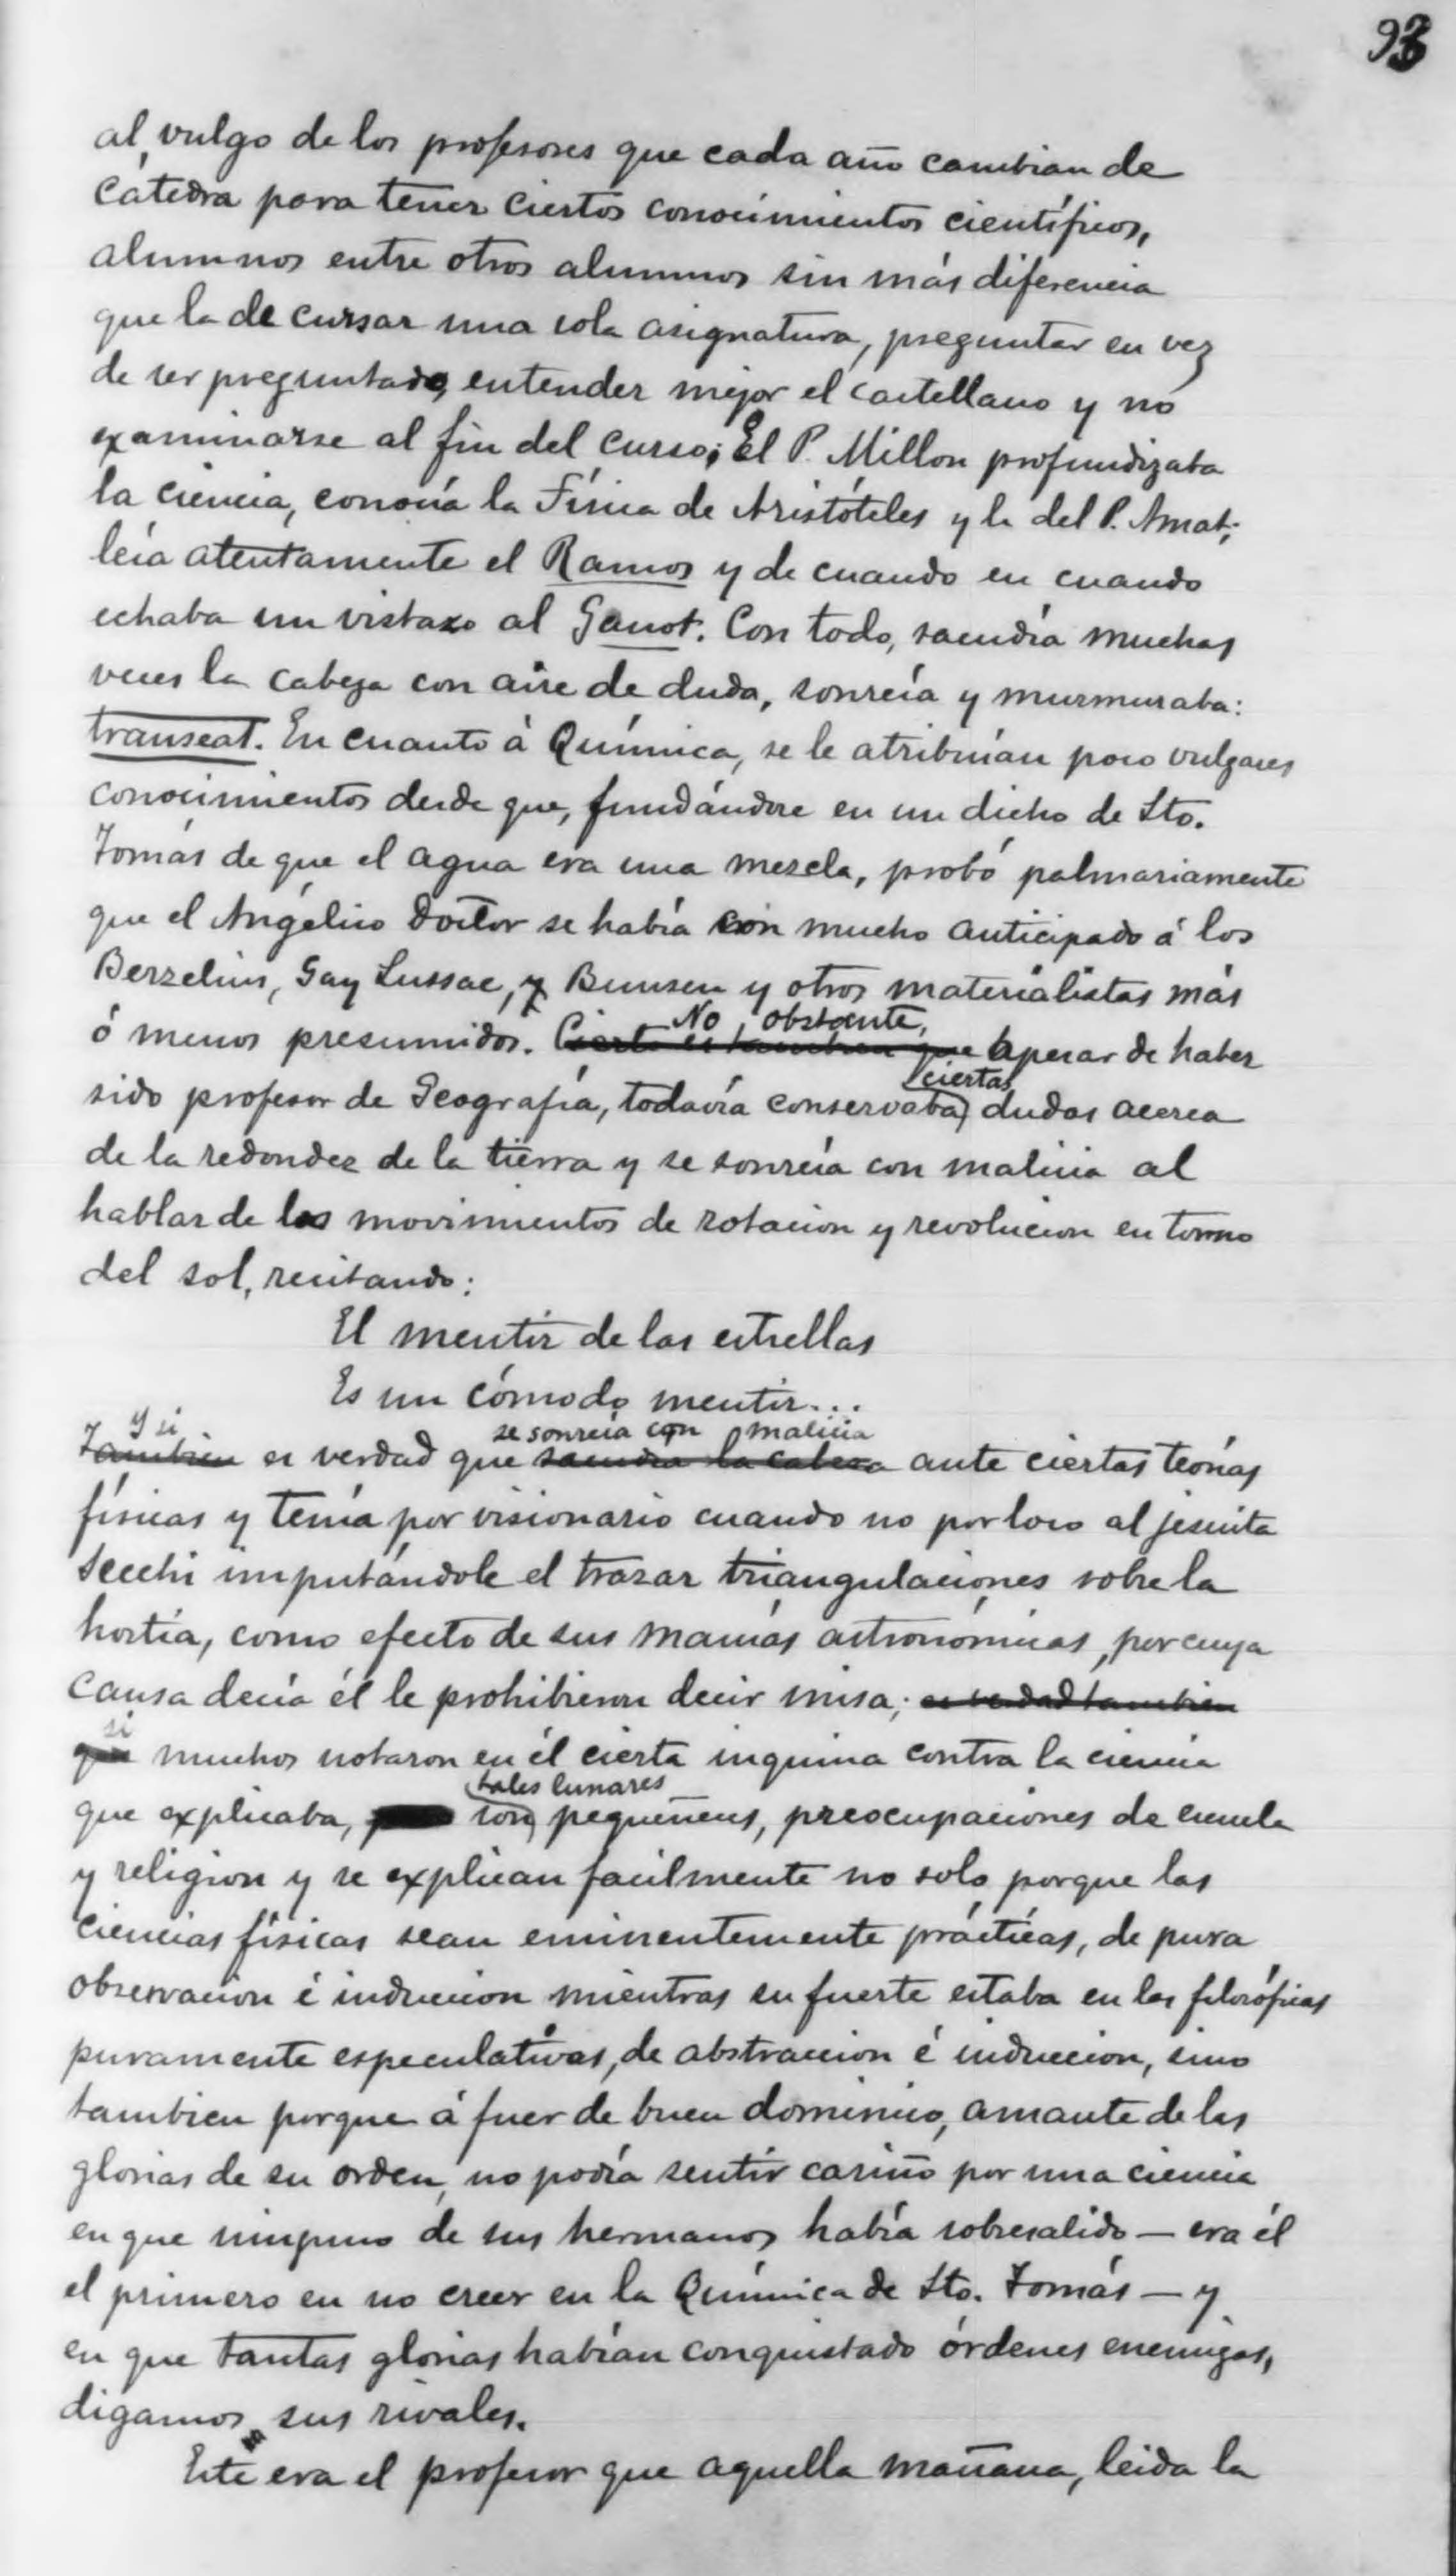 93
al vulgo de los profesores que cada año cambian de
Cátedra para tener ciertos conocimientos científicos,
alumnos entre otros alumnos sin más diferencia
que la de cursar una sola asignatura, preguntar en vez
de ser preguntado, entender mejor el castellano y no
examinarse al fin del curso; El P. Millon profundizaba
la ciencia, conocía la Física de Aristóteles y la del P. Amat;
leía atentamente el Ramos y de cuando en cuando
echaba un vistazo al Ganot. Con todo, sacudía muchas
veces la cabeza con aire de duda, sonreía y murmuraba:
transeat. En cuanto á Química, se le atribuían poco vulgares
conocimientos desde que, fundándose en un dicho de Sto.
Tomás de que el agua era una mezcla, probó palmariamente
que el Angélico Doctor se había con mucho anticipado á los
Berzelius, Gay Lussac, y Bunsen y otros materialistas más
No obstante,
ó menos presumidos. Cierto es tambien que apesar de haber
ciertas
sido profesor de Geografía, todavía conservaba dudas acerca
de la redondez de la tierra y se sonreía con malicia al
hablar de los movimientos de rotacion y revolucion en torno
del sol, recitando:
El mentir de las estrellas
Es un cómodo mentir...
Y si se sonreía con malicia
Tambien es verdad que sacudia la cabeza ante ciertas teorías
físicas y tenía por visionario cuando no por loco al jesuita
Secchi imputándole el trazar triangulaciones sobre la
hostia, como efecto de sus manías astronómicas, por cuya
causa decía él le prohibieron decir misa; es verdad tambien
si
que muchos notaron en él cierta inquina contra la ciencia
tales lunares
que explicaba, son pequeñeces, preocupaciones de escuela
y religion y se explican facilmente no solo porque las
ciencias físicas sean eminentemente prácticas, de pura
observacion é induccion mientras su fuerte estaba en las filosóficas
puramente especulativas, de abstraccion é induccion, sino
tambien porque á fuer de buen dominico, amante de las
glorias de su orden, no podía sentir cariño por una ciencia
en que ninguno de sus hermanos había sobresalido — era él
el primero en no creer en la Química de Sto. Tomás — y
en que tantas glorias habían conquistado órdenes enemigas,
digamos sus rivales.
Este era el profesor que aquella mañana, leida la